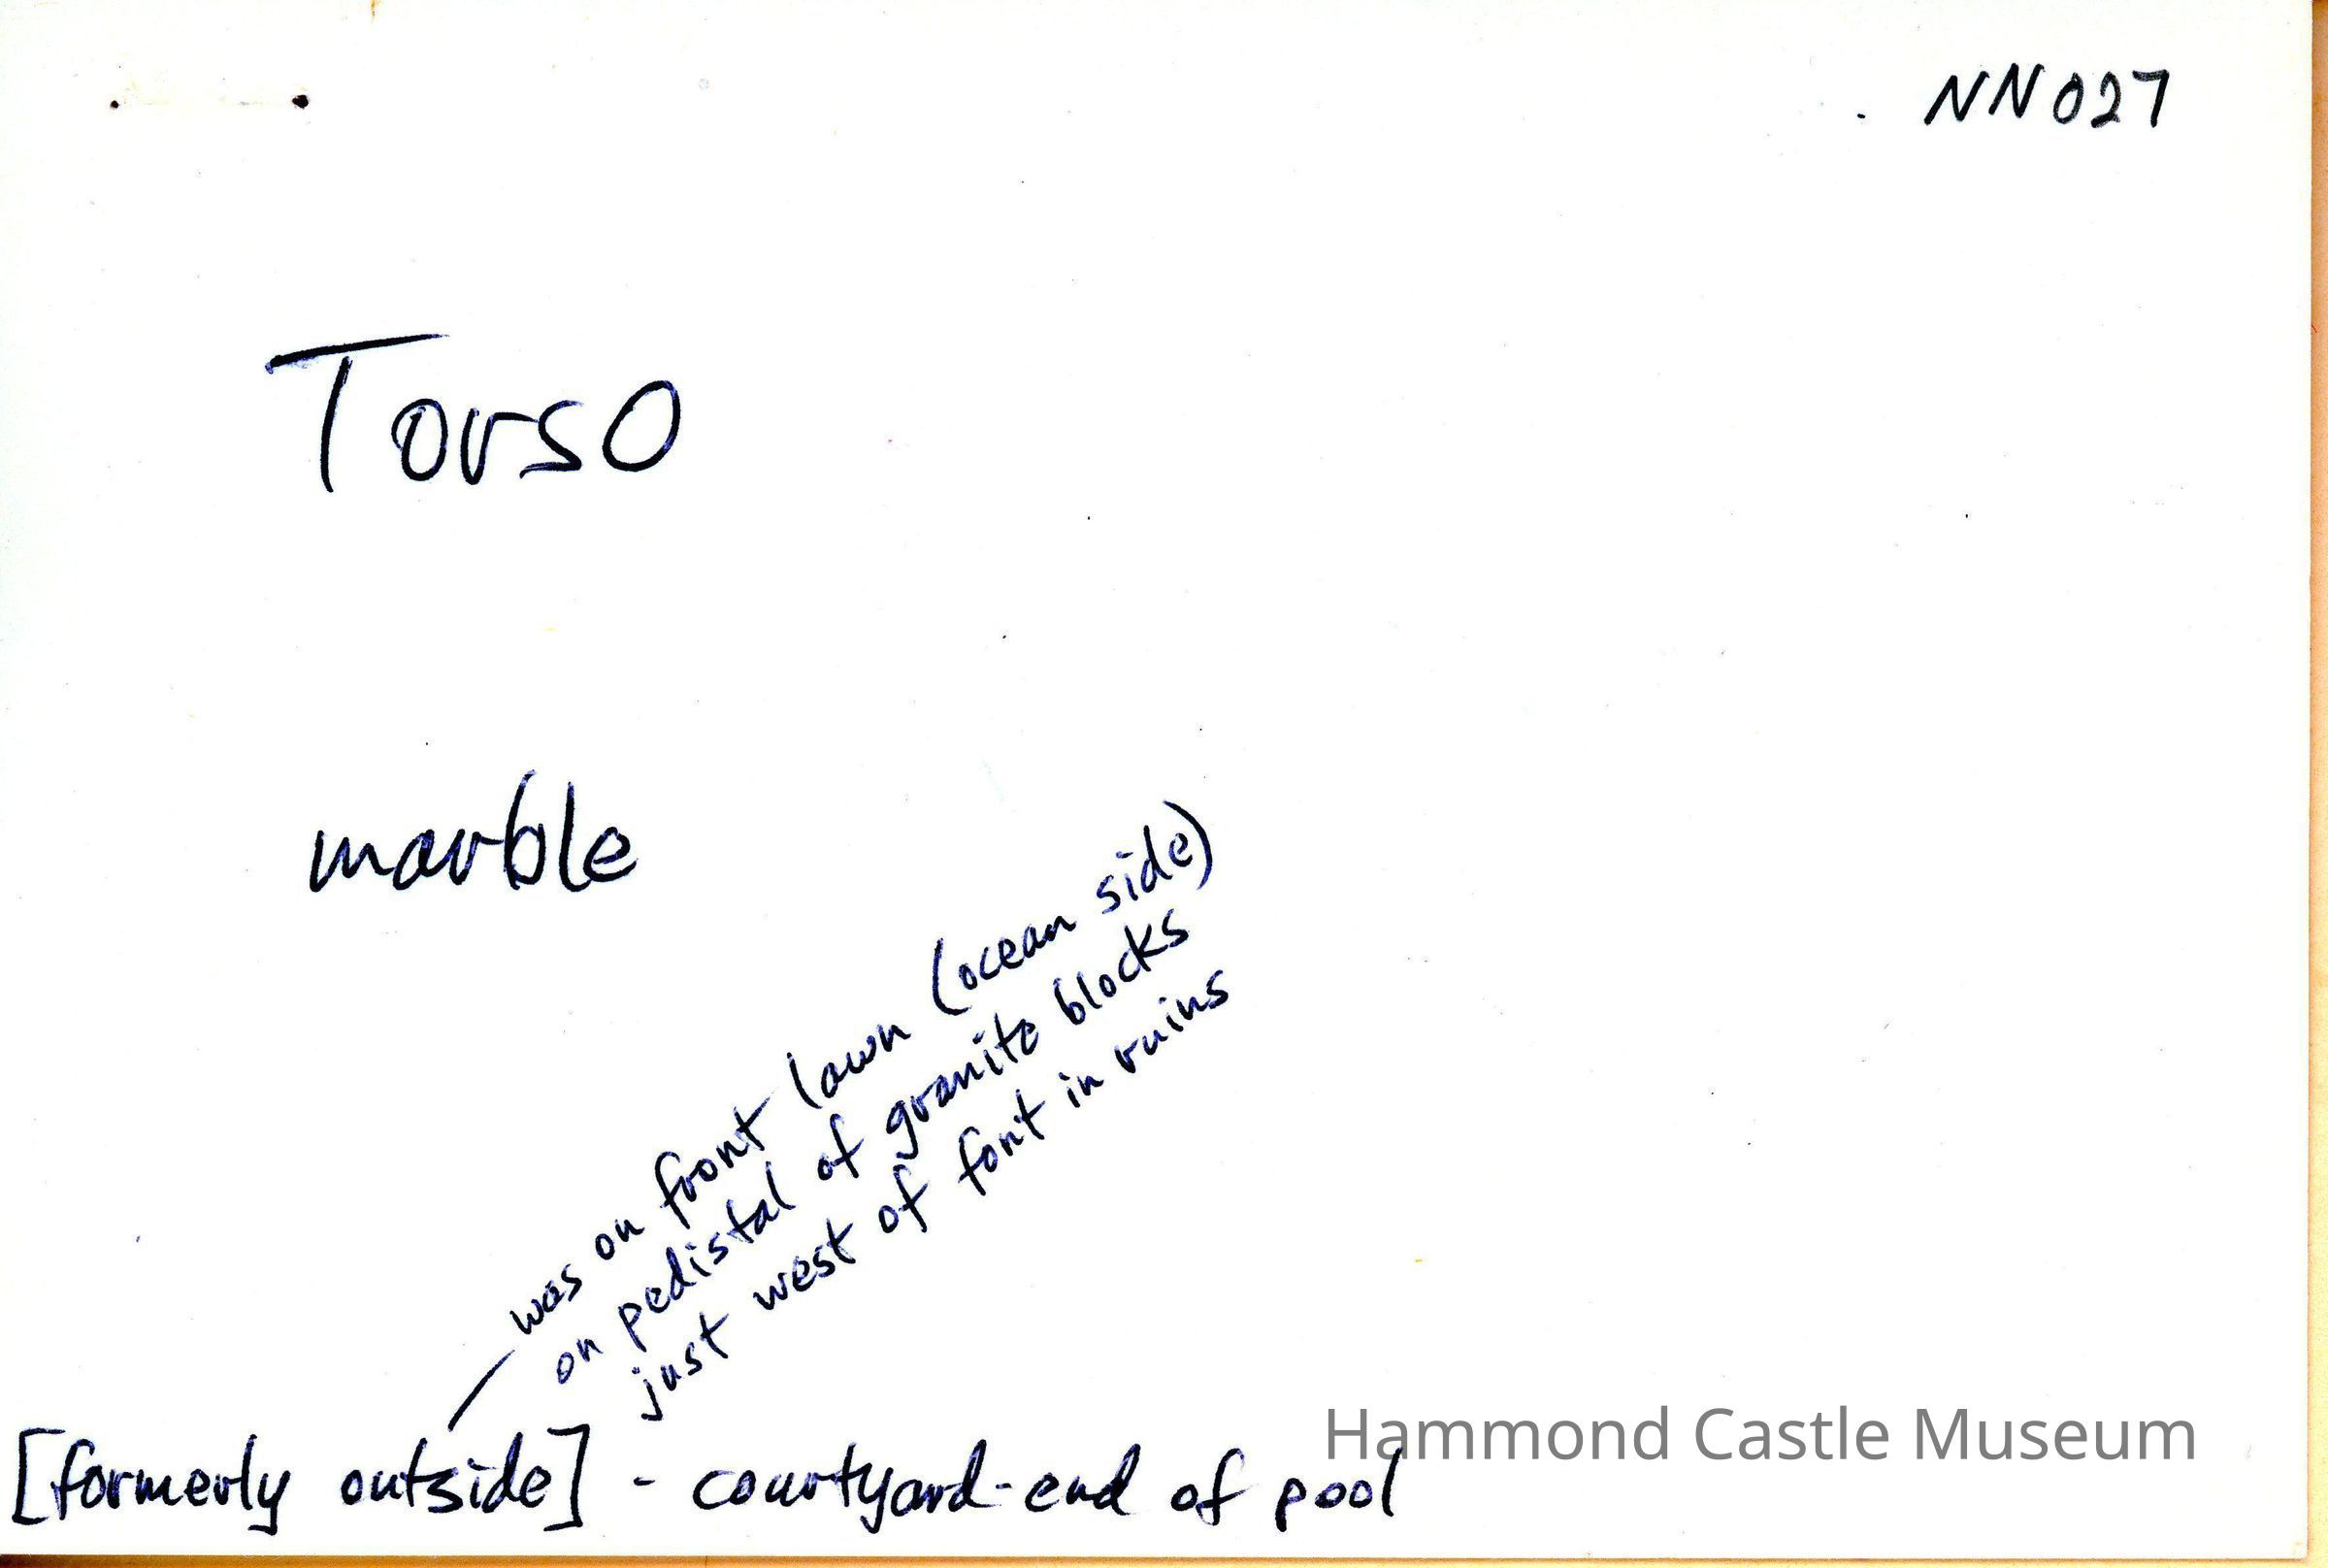 NN027
Torso
marble
was on front lawn (ocean side)
on pedistal of granite blocks
just west of font in ruins
[formerly outside] - courtyard-end of pool
Hammond Castle Museum